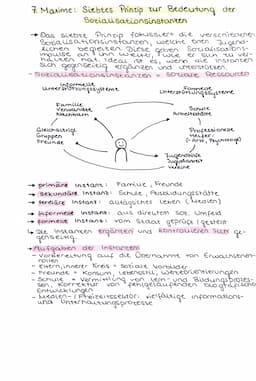 7. Maxime: Siebtes Prinzip zur Bedeutung der
Sozialisationsinstanzen
→ Das siebte Prinzip fokussiert die verschiedenen
Sozialisationsinstanzen, welche den Jugend-
lichen begleiten. Diese geben Sozialisations-
impulse an ihn weiter, wie er sich zu ver-
halten hat. Ideal ist es, wenn die Instanzen
sich gegenseitig ergänzen und unterstützen.
- Sozialisationsinstanzen = soziale Ressourcen
informelle
Unterstützungssysteme
formelle
Unterstützungssysteme
Familie
Verwandte
Nachbarn
Schule
Arbeitsstätte
Gleichaltrige
Gruppen
Freunde
Professionelle
Helfer
(Arzt, Psychologe)
Jugendclub
Jugendamt
Vereine
→ primäre Instanz: Familie, Freunde
→ sekundäre Instanz: Schule, Ausbildungsstätte
→ tertiäre Instanz: alltägliches Leben (Medien)
→ informelle Instanz: aus direktem soz. Umfeld
→ formelle Instanz: vom Staat geprüft / gestellt
→ Die Instanzen ergänzen und kontrollieren sich ge-
genseitig.
Aufgaben der Instanzen
- Vorbereitung auf die Übernahme von Erwachsenen-
rollen
- Eltern, innerer Kreis = soziale Vorbilder
- Freunde = Konsum, Lebensstil, Wertorientierungen
- Schule = Vermittlung von Lern- und Bildungsprozes-
sen, Korrektur von fehlgelaufenen biografischen
Entwicklungen
- Medien- / Freizeitsektor: vielfältige Informations-
und Unterhaltungsprozesse